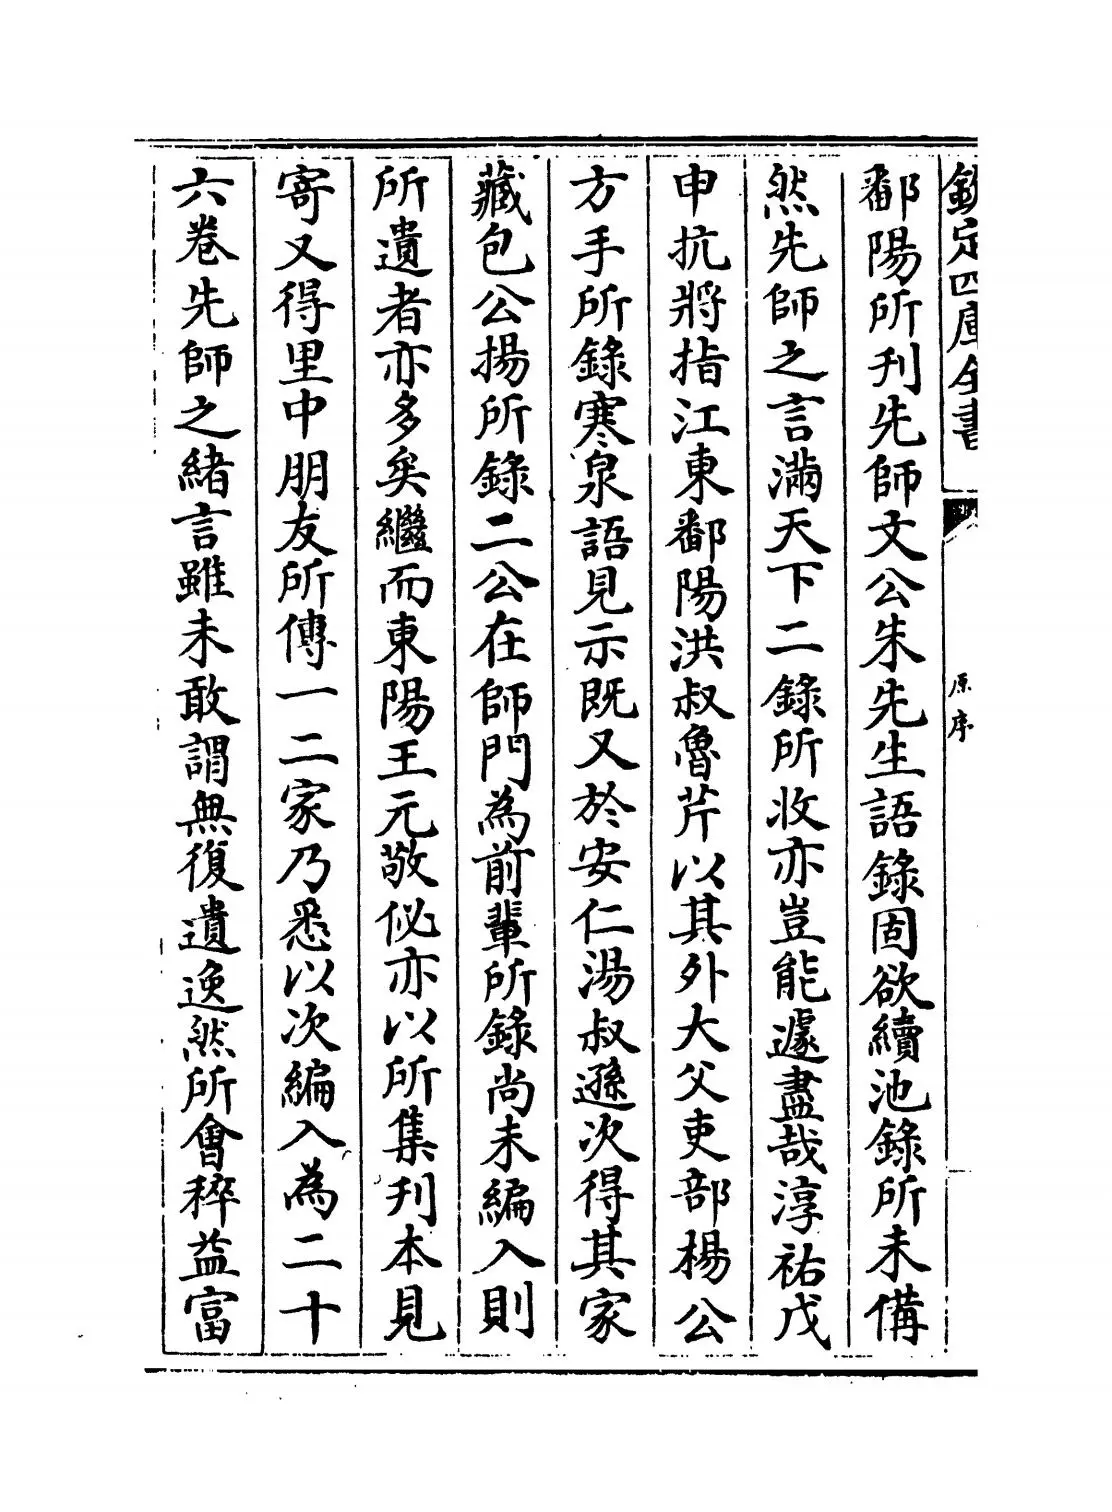 欽定四庫全書
原序
鄱陽所刊先師文公朱先生語錄固欲續池錄所未備
然先師之言滿天下二錄所收亦豈能遽盡哉淳祐戊
申抗將指江東鄱陽洪叔魯芹以其外大父吏部楊公
方手所錄寒泉語見示既又於安仁湯叔遜次得其家
藏包公揚所錄二公在師門為前輩所錄尚未編入則
所遺者亦多矣繼而東陽王元敬佖亦以所集刊本見
寄又得里中朋友所傳一二家乃悉以次編入為二十
六卷先師之緒言雖未敢謂無復遺逸然所會稡益富